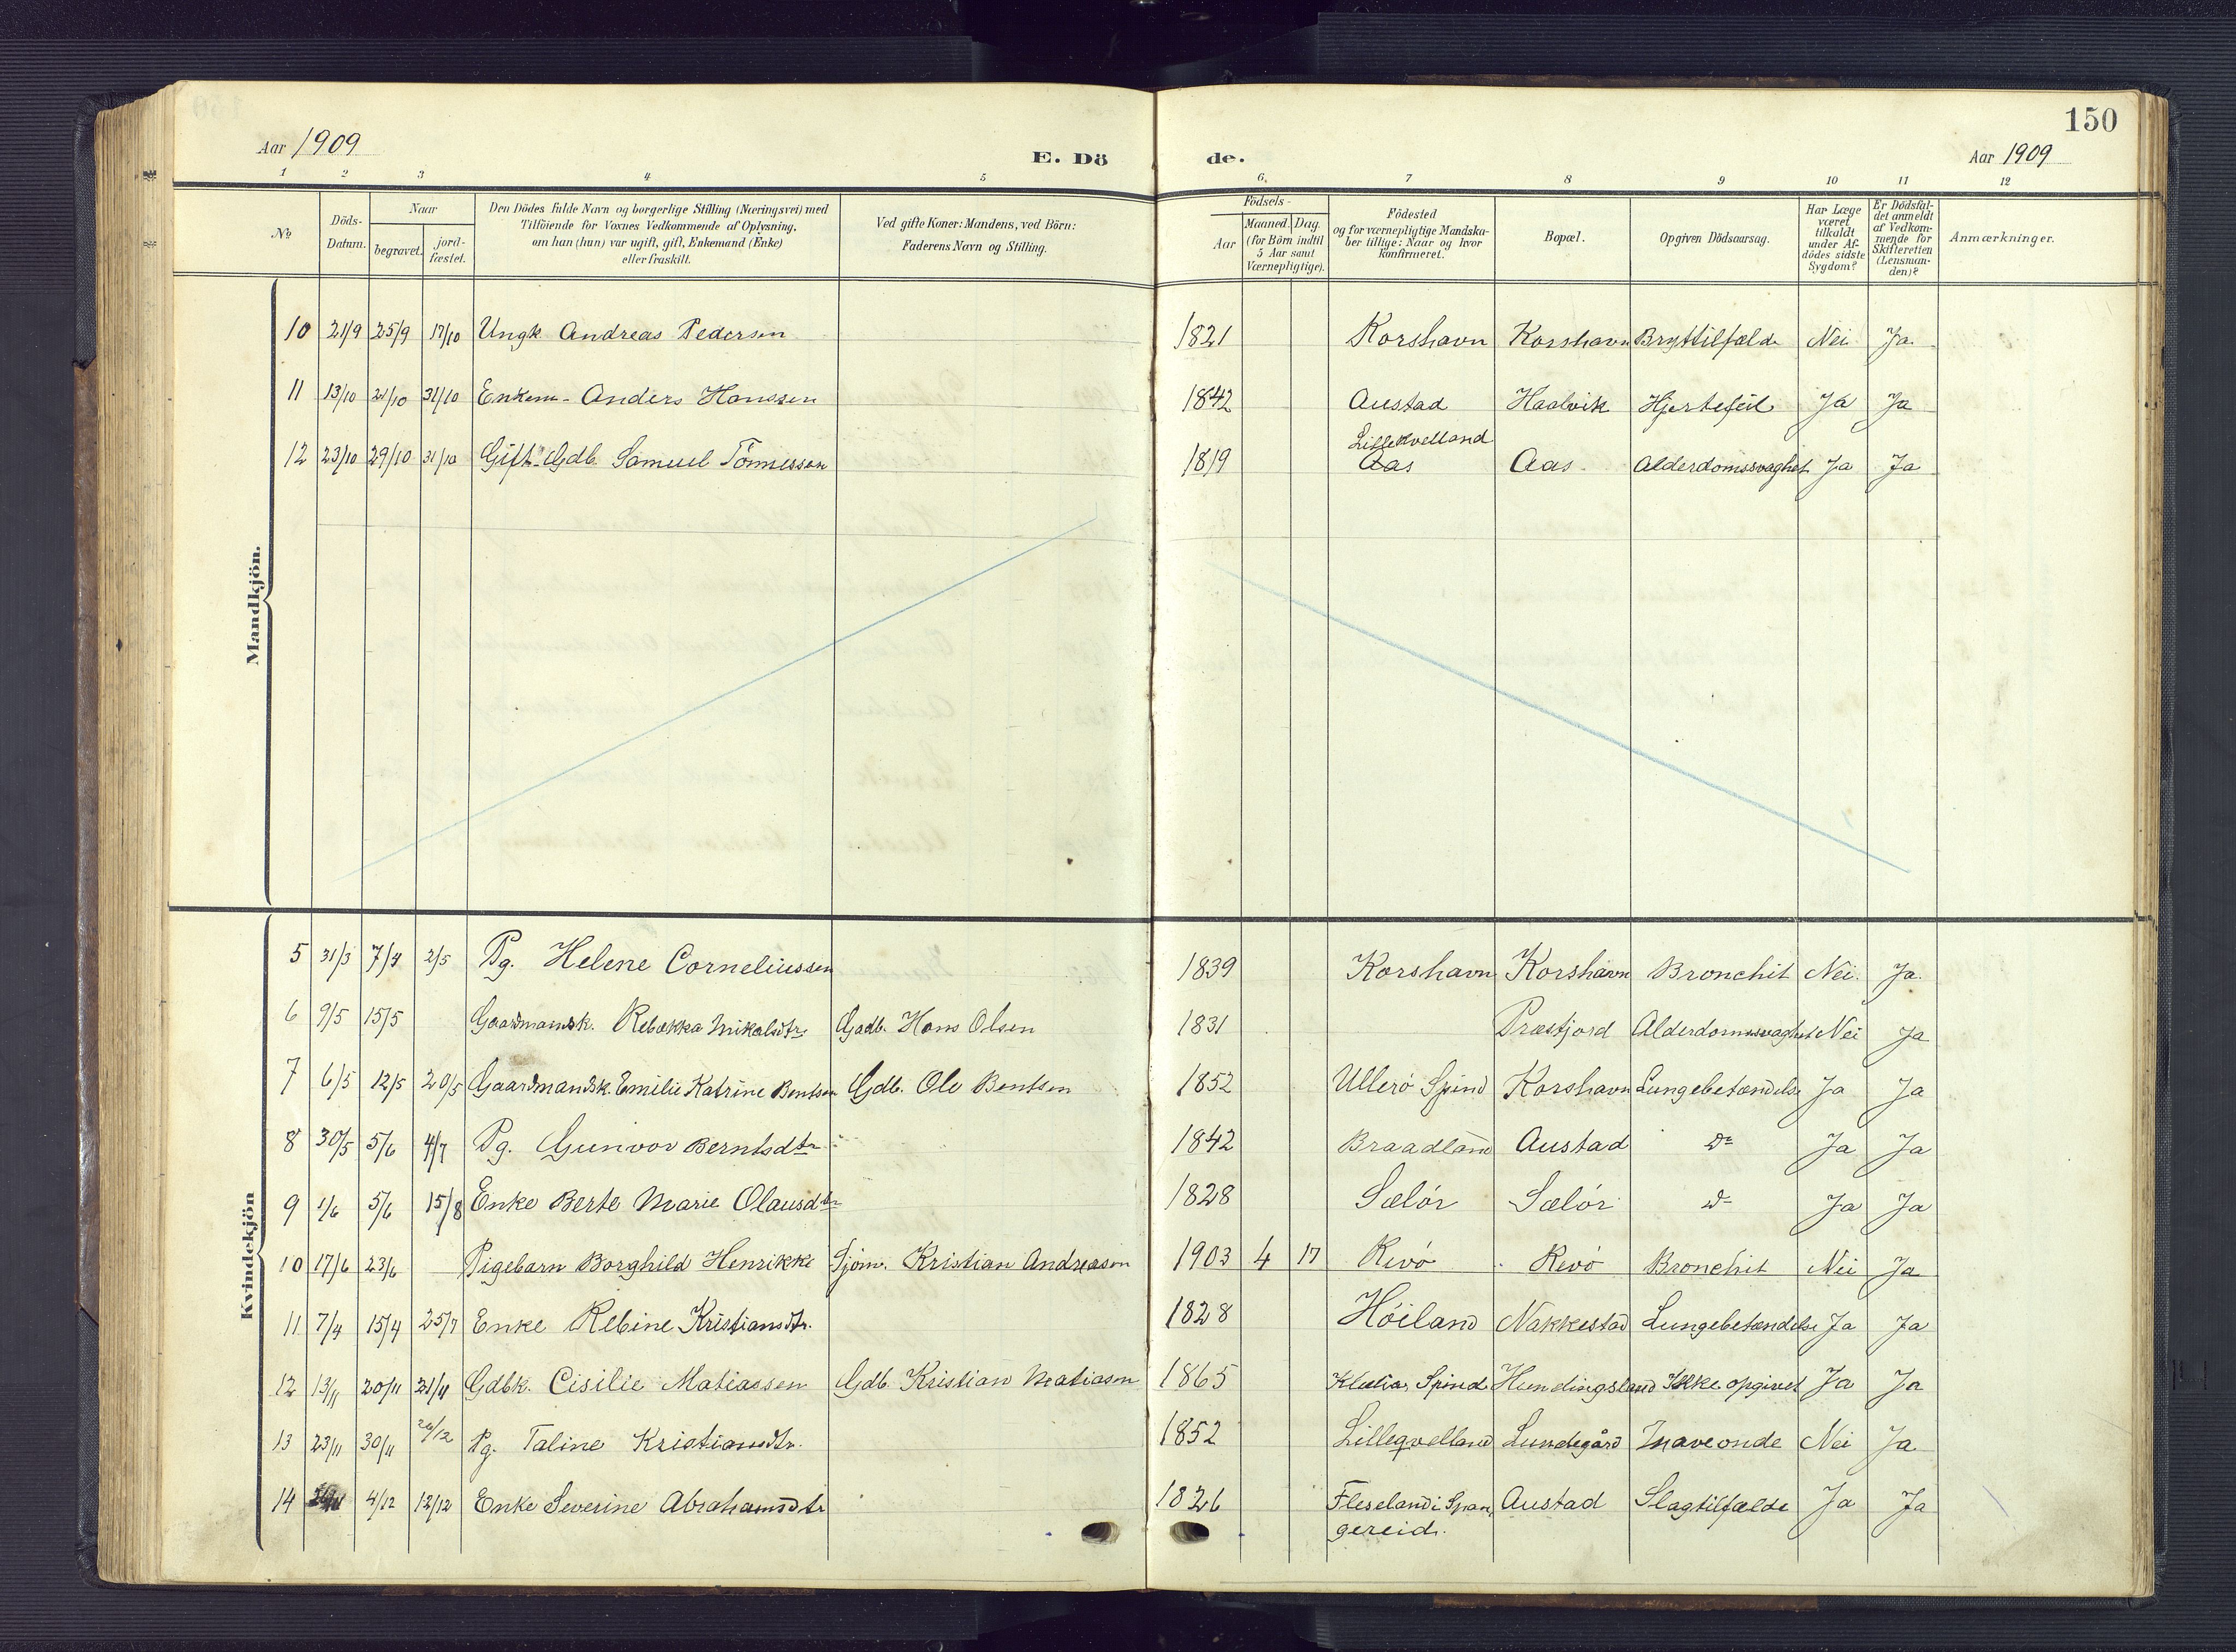 150
Aar 1909 E. Dö de. Aar 1909
1 2 3 4 5 6. 7 8 9 10 11 12
№
Döds-
Datum.
Naar
begravet.
jord-
fæstet.
Den Dödes fulde Navn og borgerlige Stilling (Næringsvei) med
Tilföiende for Voxnes Vedkommende af Oplysning,
om han (hun) var ugift, gift, Enkemand (Enke)
eller fraskilt.
Ved gifte Koner: Mandens, ved Börn:
Faderens Navn og Stilling.
Födsels-
Aar
Maaned. Dag.
(for Börn indtil
5 Aar samt
Værnepligtige).
Födested
og for værnepligtige Mandska-
ber tillige: Naar og hvor
konfirmeret.
Bopæl.
Opgiven Dödsaarsag.
Har Læge
været
tilkaldt
under Af-
dödes sidste
Sygdom?
Er Dödsfal-
det anmeldt
af Vedkom-
mende for
Skifteretten
(Lensman-
den)?
Anmærkninger.
Mandkjön.
10 21/9 25/9 17/10 Ungk. Andreas Pedersen 1821 Korshavn Korshavn Brysttilfælde Nei Ja.
11 13/10 21/10 31/10 Enkem- Anders Hanssen 1842 Austad Haalvik Hjertefeil Ja Ja
Lillekvelland
12 23/10 29/10 31/10 Gift Gdb. Samuel Tönnessen 1819 Aas Aas Alderdomssvaghet Ja Ja
Kvindekjön
5 31/3 7/4 2/5 Pg. Helene Corneliussen 1839 Korshavn Korshavn Bronchit Nei. Ja.
6 9/5 15/5 Gaardmandsk. Rebækka Mikalsdtr. Gadb. Hans Olsen 1831 Præstjord Alderdomssvaghet Nei Ja
7 6/5 12/5 20/5 Gaardmandsk. Emilie Katrine Bentsen Gdb. Ole Bentsen 1852 Ullerö Spind Korshavn Lungebetændelse Ja Ja
8 30/5 5/6 4/7 Pg. Gunvor Berntsdtr 1842 Braadland Austad Do Ja Ja
9 1/6 5/6 15/8 Enke Berte Marie Olausdtr 1828 Sælör Sælör Do Ja Ja
10 17/6 23/6 Pigebarn Borghild Henrikke Sjöm. Kristian Andreasen 1903 4 17 Revö Revö Bronchit Nei Ja
11 7/4 15/4 25/7 Enke Rebine Kristiansdtr. 1828 Höiland Nakkestad Lungebetændelse Ja Ja
12 13/11 20/11 21/11 Gdbk. Cisilie Matiassen Gdb. Kristian Matiasen 1865 Spind Hundingsland Ikke opgivet Ja Ja
13 23/11 30/11 26/12 Pg. Taline Kristiansdtr. 1852 Lilleqvelland Lundegård Maveonde Nei Ja
14 4/12 12/12 Enke Severine Abrahamsdtr 1826 Fleseland i Span- Austad Slagtilfælde Ja Ja
gereid.